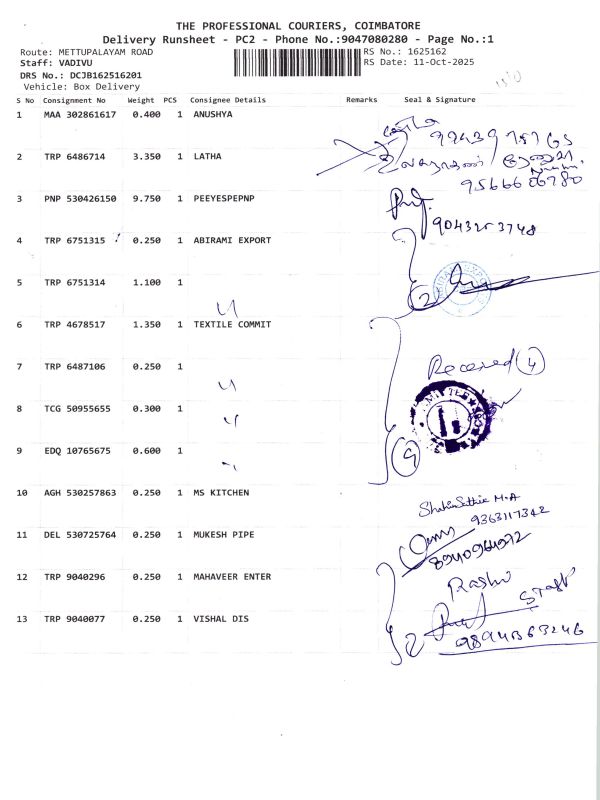 THE PROFESSIONAL COURIERS, COIMBATORE
Delivery Runsheet - PC2 - Phone No.:9047080280 - Page No.:1
Route: METTUPALAYAM ROAD RS No.: 1625162
Staff: VADIVU RS Date: 11-Oct-2025
DRS No.: DCJB162516201
Vehicle: Box Delivery
S No Consignment No Weight PCS Consignee Details Remarks Seal & Signature
1 MAA 302861617 0.400 1 ANUSHYA
2 TRP 6486714 3.350 1 LATHA
3 PNP 530426150 9.750 1 PEEYESPEPNP
9043253748
4 TRP 6751315 0.250 1 ABIRAMI EXPORT
5 TRP 6751314 1.100 1
2
6 TRP 4678517 1.350 1 TEXTILE COMMIT
7 TRP 6487106 0.250 1
Received (4)
8 TCG 50955655 0.300 1
9 EDQ 10765675 0.600 1
10 AGH 530257863 0.250 1 MS KITCHEN
9363117342
11 DEL 530725764 0.250 1 MUKESH PIPE
12 TRP 9040296 0.250 1 MAHAVEER ENTER
13 TRP 9040077 0.250 1 VISHAL DIS
2
9894363246